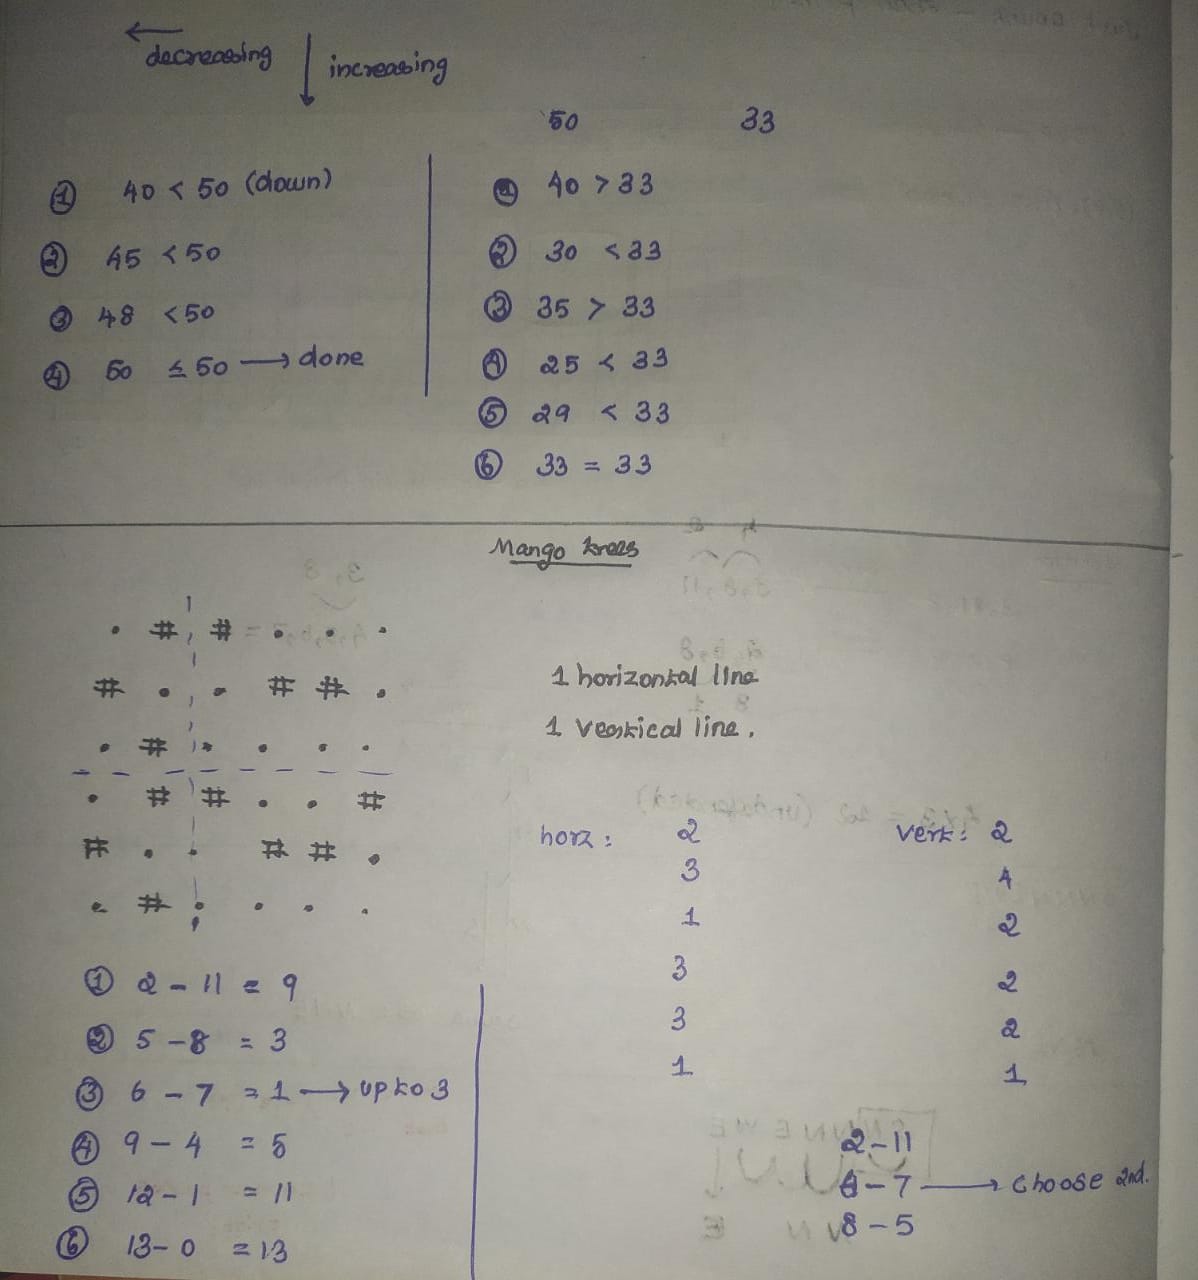 ← decreasing ↓ increasing
50 33
① 40 < 50 (down)
② 45 < 50
③ 48 < 50
④ 50 ≤ 50 → done
① 40 > 33
② 30 < 33
③ 35 > 33
④ 25 < 33
⑤ 29 < 33
⑥ 33 = 33
Mango trees
. # # . . .
# . . # # .
. # . . . .
. # # . . #
# . . # # .
. # . . . .
1 horizontal line
1 vertical line.
horz : 2
3
1
3
3
1
vert : 2
4
2
2
2
1
① 2 - 11 = 9
② 5 - 8 = 3
③ 6 - 7 = 1 → upto 3
④ 9 - 4 = 5
⑤ 12 - 1 = 11
⑥ 13 - 0 = 13
2 - 11
6 - 7 → choose 2nd.
8 - 5